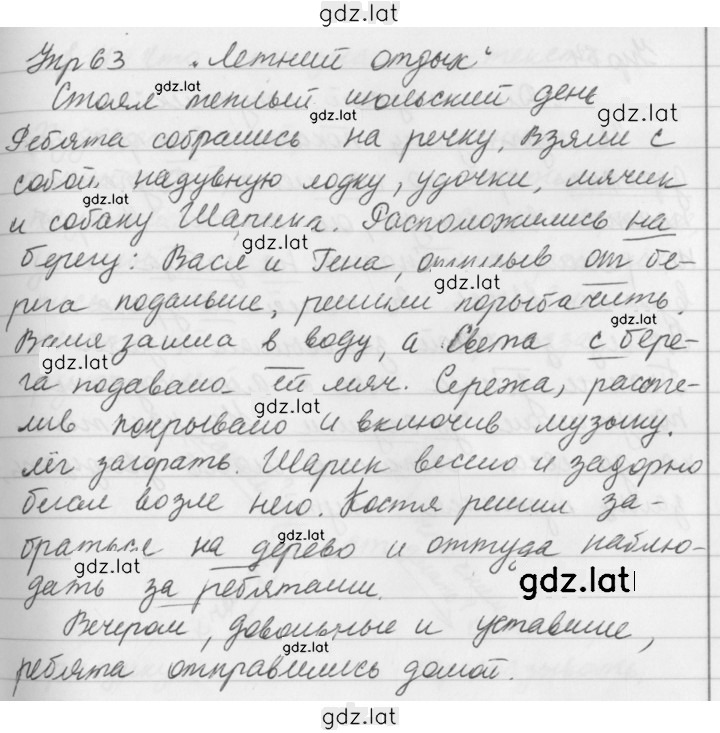 gdz.lat
Упр 63 „Летний отдых“
gdz.lat
Стоял теплый июльский день
Ребята собрались на речку, взяли с
gdz.lat
собой надувную лодку, удочки, мячик
gdz.lat
и собаку Шарика. Расположились на
gdz.lat
берегу: Вася и Гена, отплыв от бе-
gdz.lat
рега подальше, решили порыбачить.
gdz.lat
Валя зашла в воду, а Света с бере-
gdz.lat
га подавала ей мяч. Сережа, рассте-
gdz.lat
лив покрывало и включив музыку.
лёг загорать. Шарик весело и задорно
gdz.lat
бегал возле него. Костя решил за-
gdz.lat
браться на дерево и оттуда наблю-
gdz.lat
gdz.lat
дать за ребятами.
Вечером, довольные и уставшие,
gdz.lat
ребята отправились домой.
gdz.lat